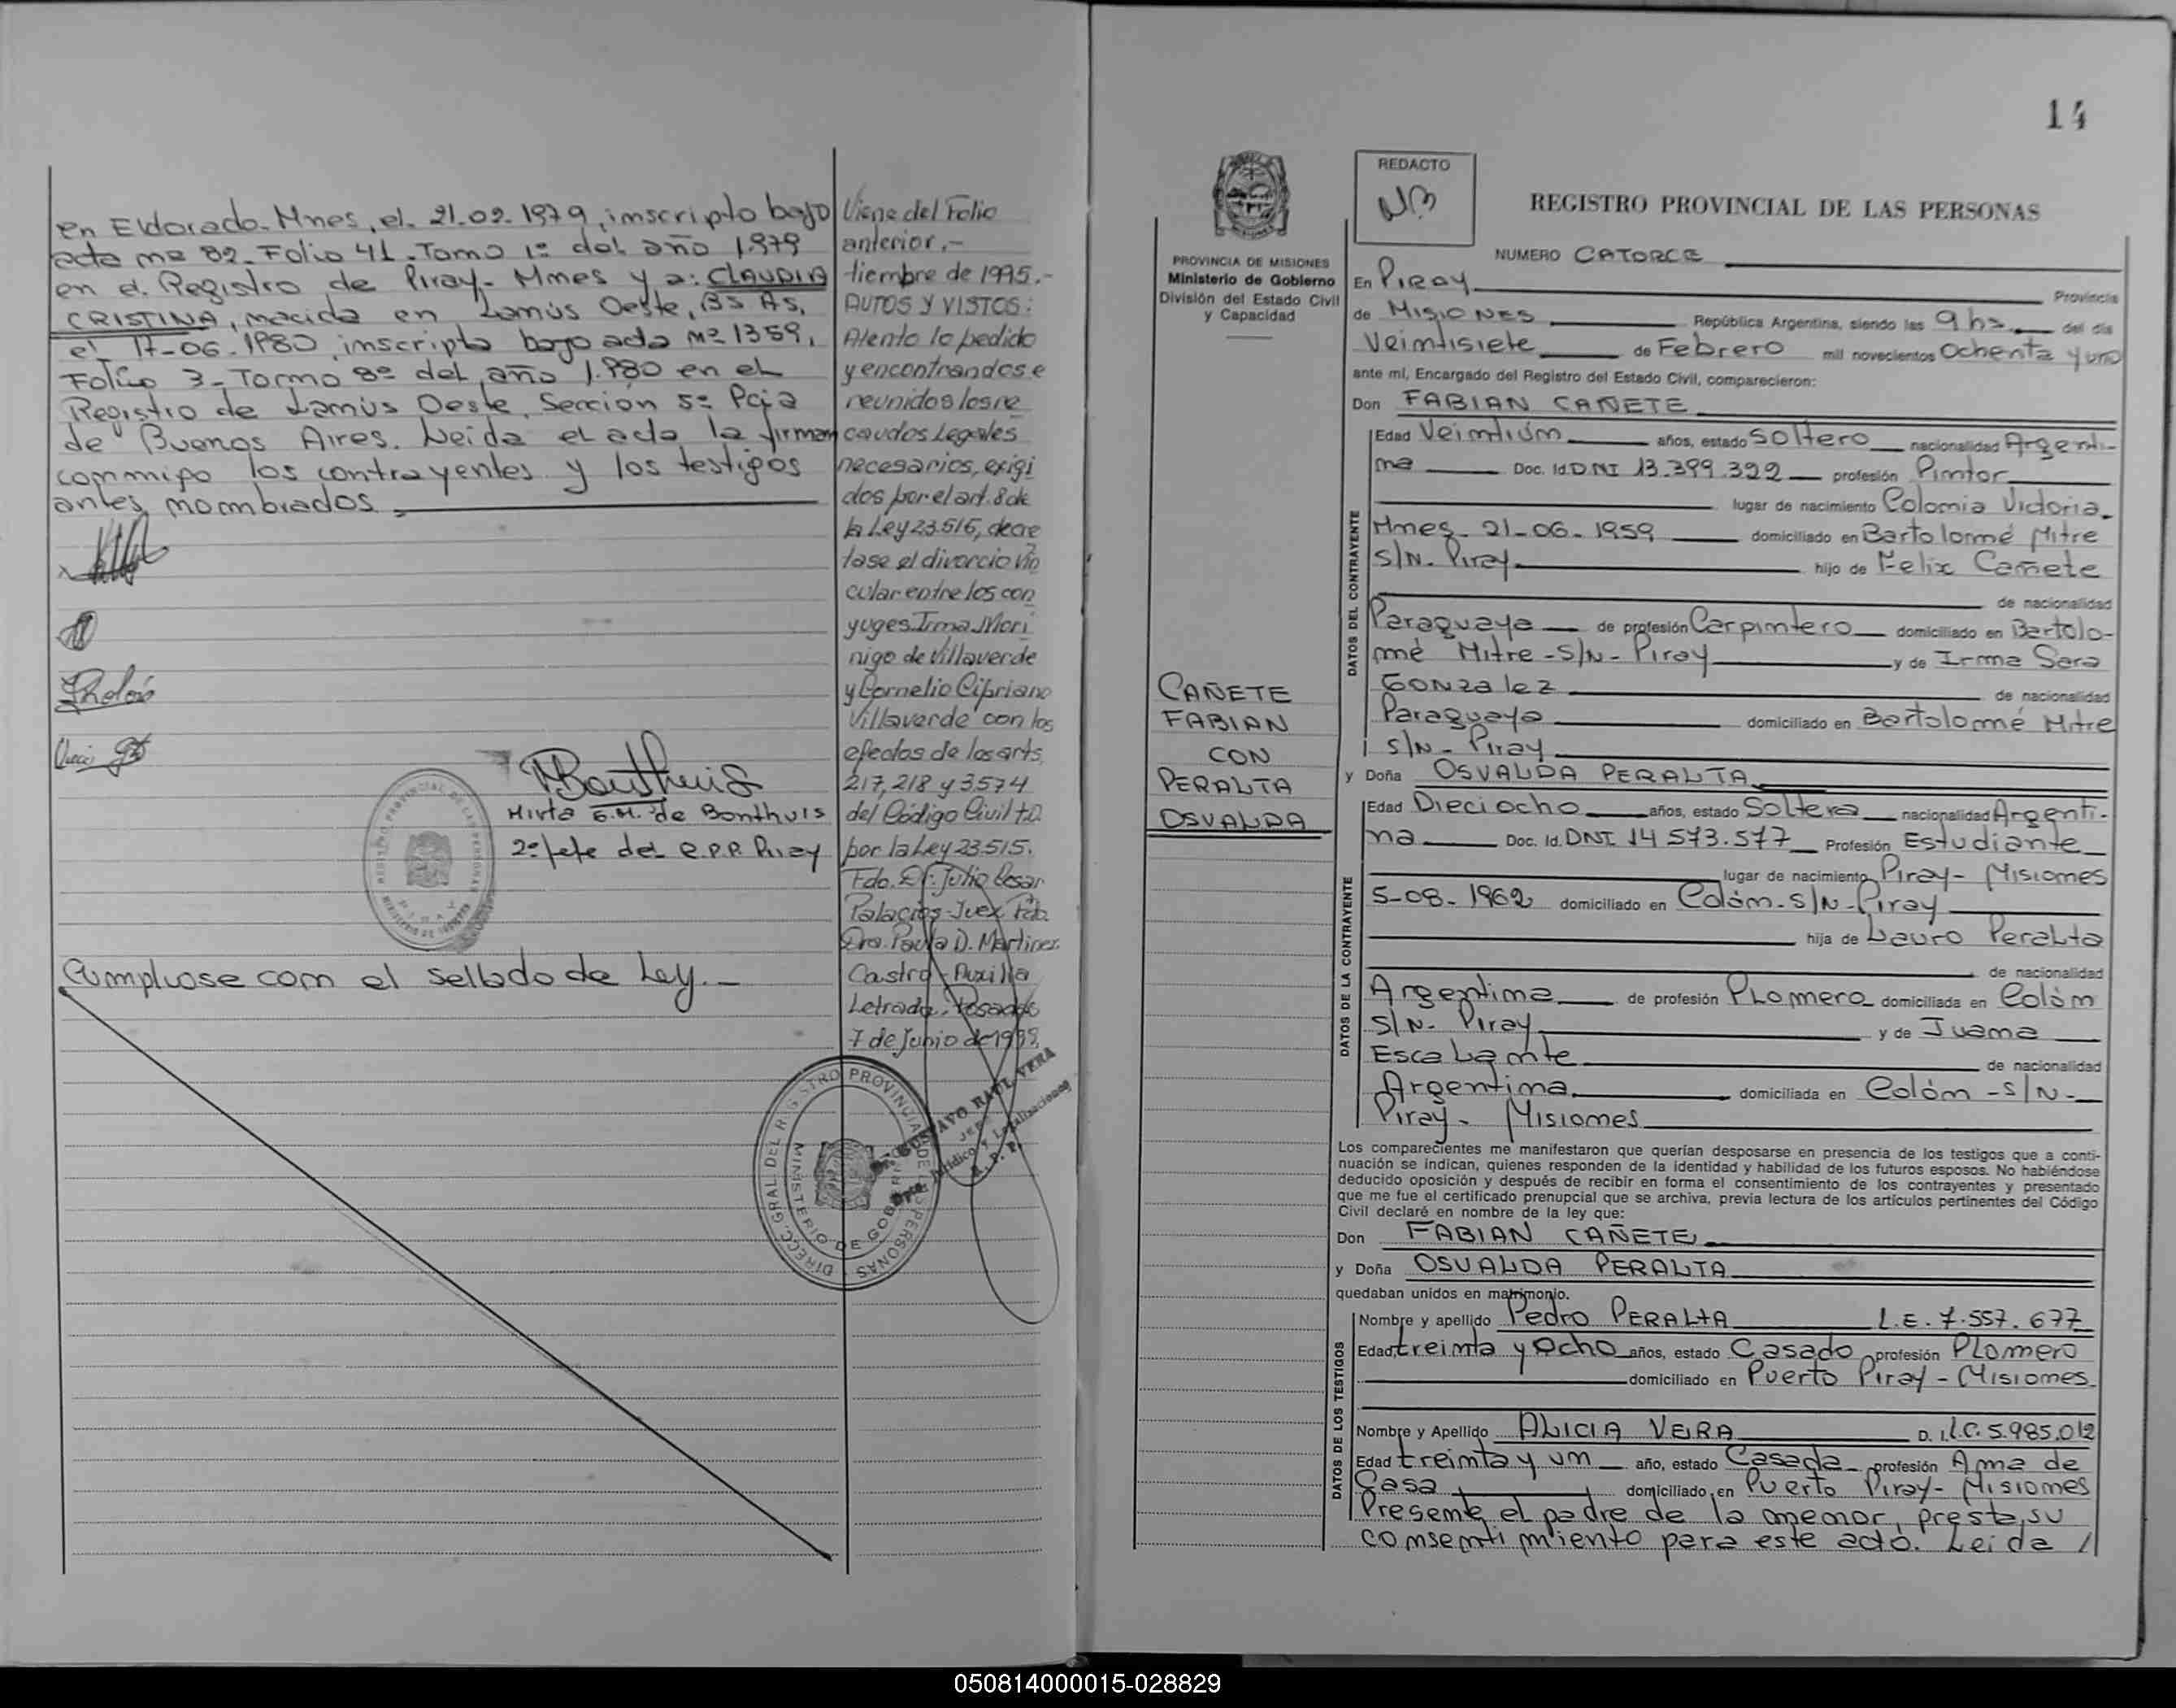 en Eldorado-Mnes, el 21-02-1979, inscripto bajo
acta nº 82-Folio 41-Tomo 1º del año 1.979
en el Registro de Piray-Mnes y a: CLAUDIA
CRISTINA, nacida en Lanús Oeste, Bs As,
el 17-06-1980, inscripta bajo acta Nº 1359,
Folio 3-Tomo 8º del año 1.980 en el
Registro de Lanús Oeste, Sección 5º Pcia
de Buenos Aires. Leida el acta la firman
conmigo los contrayentes y los testigos
antes nombrados.
Mirta E.M. de Bonthuis
2º Jefe del R.P.P. Piray
Cumpliose con el sellado de Ley.-
Viene del Folio
anterior.-
tiembre de 1995.-
AUTOS Y VISTOS:
Atento lo pedido
y encontrandose
reunidos los re
caudos Legales
necesarios, exigi
dos por el art. 8 de
la Ley 23.515, decre
tase el divorcio Vin
cular entre los con
yuges Irma Mori
nigo de Villaverde
y Cornelio Cipriano
Villaverde con los
efectos de los arts.
217, 218 y 3.574
del Código Civil t.o.
por la Ley 23.515.
Fdo. Dr. Julio Cesar
Palacios-Juez Fdo.
Dra. Paula D. Martinez
Castro-Auxilia
Letrada, Posadas
7 de Junio de
DIRECC. GRAL. DEL REGISTRO PROVINCIAL DE LAS PERSONAS
MINISTERIO DE GOB
GUSTAVO RAUL VERA
14
PROVINCIA DE MISIONES
Ministerio de Gobierno
División del Estado Civil
y Capacidad
REDACTO
REGISTRO PROVINCIAL DE LAS PERSONAS
NUMERO CATORCE
En PIRAY Provincia
de MISIONES República Argentina, siendo las 9 hs del día
Veintisiete de Febrero mil novecientos Ochenta y uno
ante mí, Encargado del Registro del Estado Civil, comparecieron:
Don FABIAN CAÑETE
Edad Veintiún años, estado Soltero nacionalidad Argenti-
na Doc. Id. DNI 13.399.322 profesión Pintor
lugar de nacimiento Colonia Victoria-
Mnes-21-06-1959 domiciliado en Bartolomé Mitre
S/N-Piray hijo de Felix Cañete
de nacionalidad
Paraguaya de profesión Carpintero domiciliado en Bartolo-
mé Mitre-S/N-Piray y de Irma Sara
Gonzalez de nacionalidad
Paraguaya domiciliado en Bartolomé Mitre
S/N-Piray
DATOS DEL CONTRAYENTE
CAÑETE
FABIAN
CON
PERALTA
OSVALDA
y Doña OSVALDA PERALTA
Edad Dieciocho años, estado Soltera nacionalidad Argenti-
na Doc. Id. DNI 14.573.577 Profesión Estudiante
lugar de nacimiento Piray-Misiones
5-08-1962 domiciliado en Colón-S/N-Piray
hija de Lauro Peralta
de nacionalidad
Argentina de profesión Plomero domiciliada en Colón
S/N-Piray y de Juana
Escalante de nacionalidad
Argentina domiciliada en Colón-S/N-
Piray-Misiones
DATOS DE LA CONTRAYENTE
Los comparecientes me manifestaron que querían desposarse en presencia de los testigos que a conti-
nuación se indican, quienes responden de la identidad y habilidad de los futuros esposos. No habiéndose
deducido oposición y después de recibir en forma el consentimiento de los contrayentes y presentado
que me fue el certificado prenupcial que se archiva, previa lectura de los artículos pertinentes del Código
Civil declaré en nombre de la ley que:
Don FABIAN CAÑETE
y Doña OSVALDA PERALTA
quedaban unidos en matrimonio.
Nombre y apellido Pedro PERALTA L.E. 7.557.677
Edad treinta y ocho años, estado Casado profesión Plomero
domiciliado en Puerto Piray-Misiones
Nombre y Apellido ALICIA VERA D. I. L.C. 5.985.012
Edad treinta y un año, estado Casada profesión Ama de
Casa domiciliado en Puerto Piray-Misiones
DATOS DE LOS TESTIGOS
Presente el padre de la menor, presta su
consentimiento para este acto. Leida //
050814000015-028829